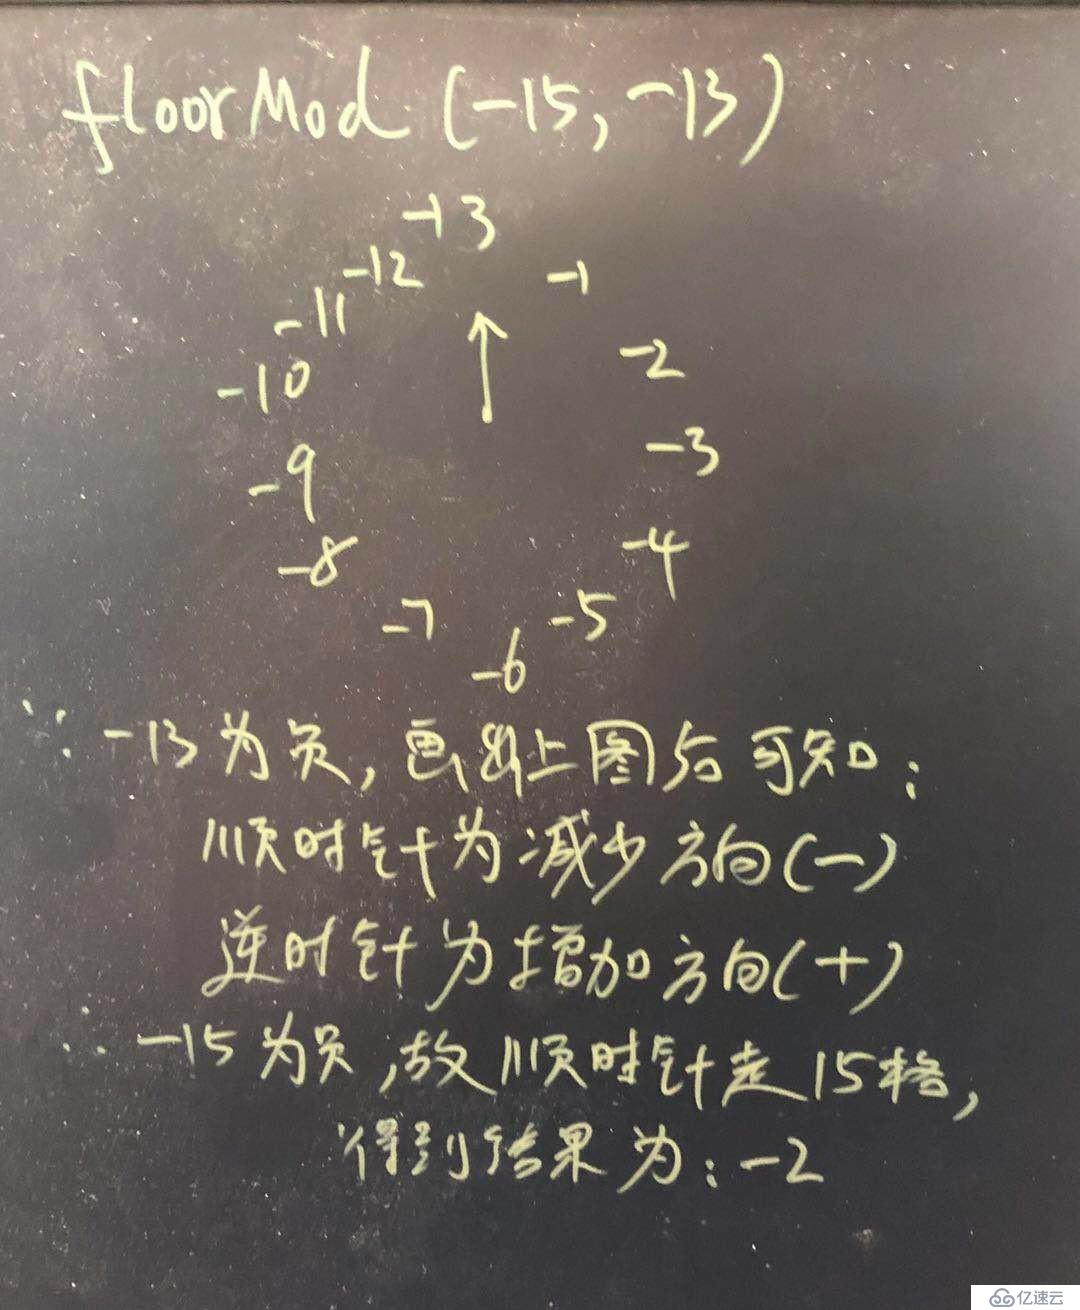 floorMod (-15, -13)
-13
-12 -1
-11
-2
-10
-3
-9
-4
-8
-7 -5
-6
∵ -13为负, 画出上图后可知:
顺时针为减少方向(-)
逆时针为增加方向(+)
∵ -15为负, 故顺时针走15格,
得到结果为: -2
亿速云